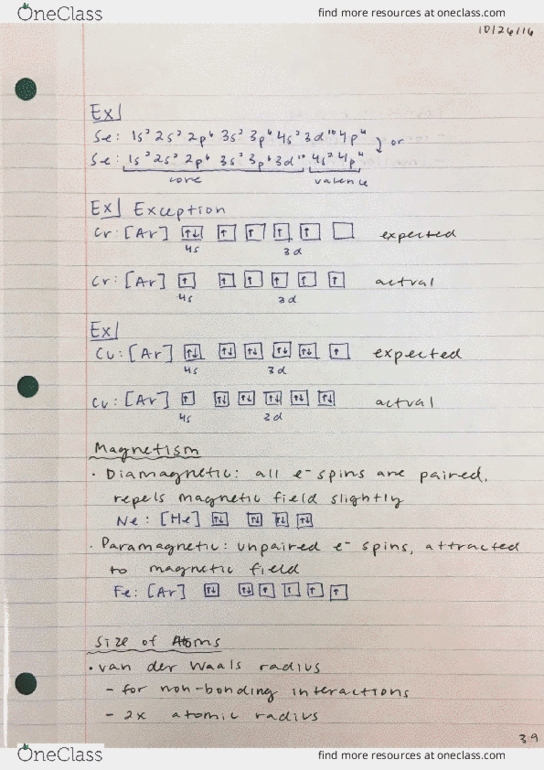 OneClass find more resources at oneclass.com
10/26/16
Ex|
Se: 1s² 2s² 2p⁶ 3s² 3p⁶ 4s² 3d¹⁰ 4p⁴ or
Se: 1s² 2s² 2p⁶ 3s² 3p⁶ 3d¹⁰ 4s² 4p⁴
core valence
Ex| Exception
Cr: [Ar] [↑↓] [↑] [↑] [↑] [↑] [ ] expected
4s 3d
Cr: [Ar] [↑] [↑] [↑] [↑] [↑] [↑] actual
4s 3d
Ex|
Cu: [Ar] [↑↓] [↑↓] [↑↓] [↑↓] [↑↓] [↑] expected
4s 3d
Cu: [Ar] [↑] [↑↓] [↑↓] [↑↓] [↑↓] [↑↓] actual
4s 3d
Magnetism
· Diamagnetic: all e⁻ spins are paired,
repels magnetic field slightly
Ne: [He] [↑↓] [↑↓] [↑↓] [↑↓]
· Paramagnetic: unpaired e⁻ spins, attracted
to magnetic field
Fe: [Ar] [↑↓] [↑↓] [↑] [↑] [↑] [↑]
Size of Atoms
· van der Waals radius
- for non-bonding interactions
- 2x atomic radius
39
OneClass find more resources at oneclass.com